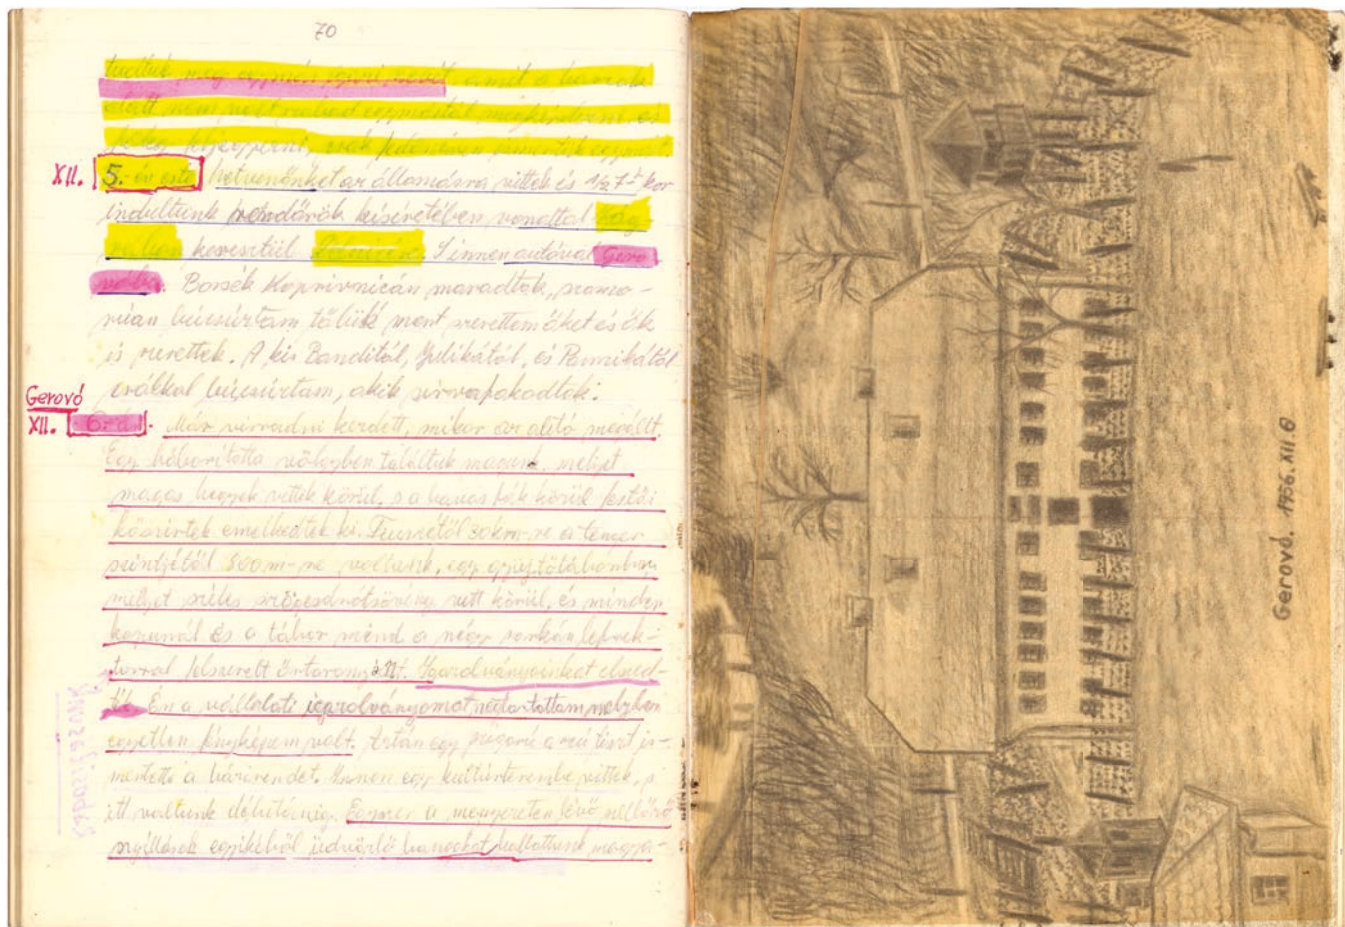 70
tudtuk meg egymás igazi nevét, amit a harcok
alatt nem volt szabad egymástól megkérdezni, és
csak fedőnéven ismertük egymást
XII. 5.-én este hetvenünket az állomásra vittek és 1/2 7-kor
indultunk rendőrök kíséretében vonattal Zág-
rábon keresztül S innen autóval Gero-
vóba. Borsék Koprivnicán maradtak, szomo-
rúan búcsúztam tőlük mert szerettem őket és ők
is szerettek. A kis Banditól, Julikától, és Pannikától
csókkal búcsúztam, akik sírvafakadtak.
Gerovó
XII. 6.-án. Már virradni kezdett, mikor az autó megállt.
Egy háborította völgyben találtuk magunk, melyet
magas hegyek vettek körül, s a havas fák közül festői
kőszirtek emelkedtek ki. Fiumétől 30 km-re a tenger
szintjétől 800 m-re voltunk, egy gyűjtőtáborban,
melyet széles szögesdrótsövény vett körül, és minden
kapunál és a tábor mind a négy sarkán reflek-
torral felszerelt őrtorony állt. Igazolványainkat elszed-
ték. Én a vállalati igazolványomat megtartottam melyben
egyetlen fényképem volt. Aztán egy szigorú arcú tiszt is-
mertette a házirendet. Innen egy kultúrterembe vittek, s
itt voltunk délutánig. Egyszer a mennyezeten lévő szellőző
nyílások egyikéből üdvözlő hangokat hallottunk, magya-
Gerovó. 1956. XII. 6